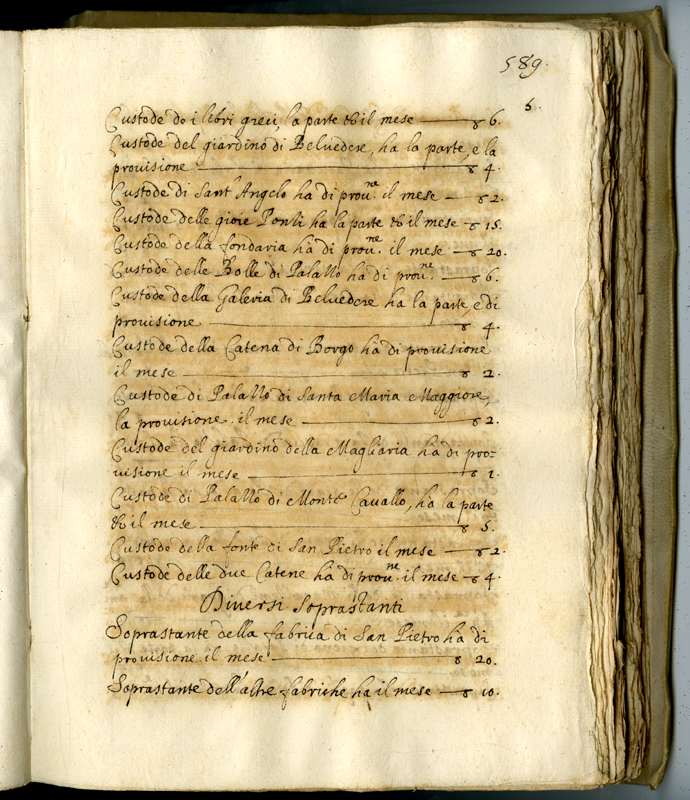 589.
5.
Custode de i libri greci, la parte et il mese — ▽ 6.
Custode del giardino di Belvedere, ha la parte, e la
provisione — ▽ 4.
Custode di Sant'Angelo ha di prou.ne il mese — ▽ 2.
Custode delle gioie Ponti ha la parte et il mese — ▽ 15.
Custode della fondaria ha di prou.ne il mese — ▽ 20.
Custode delle Bolle di Palazzo ha di prou.ne — ▽ 6.
Custode della Galeria di Beluedere ha la parte, e di
provisione — ▽ 4.
Custode della Catena di Borgo ha di provisione
il mese — ▽ 2.
Custode di Palazzo di Santa Maria Maggiore,
la provisione il mese — ▽ 2.
Custode del giardino della Magliaria ha di pro=
visione il mese — ▽ 1.
Custode di Palazzo di Monte Cavallo, ha la parte
et il mese — ▽ 5.
Custode della fonte di San Pietro il mese — ▽ 2.
Custode delle due Catene ha di prou.ne il mese — ▽ 4.
Diversi Soprastanti
Soprastante della fabrica di San Pietro ha di
provisione il mese — ▽ 20.
Soprastante dell'altre fabriche ha il mese — ▽ 10.